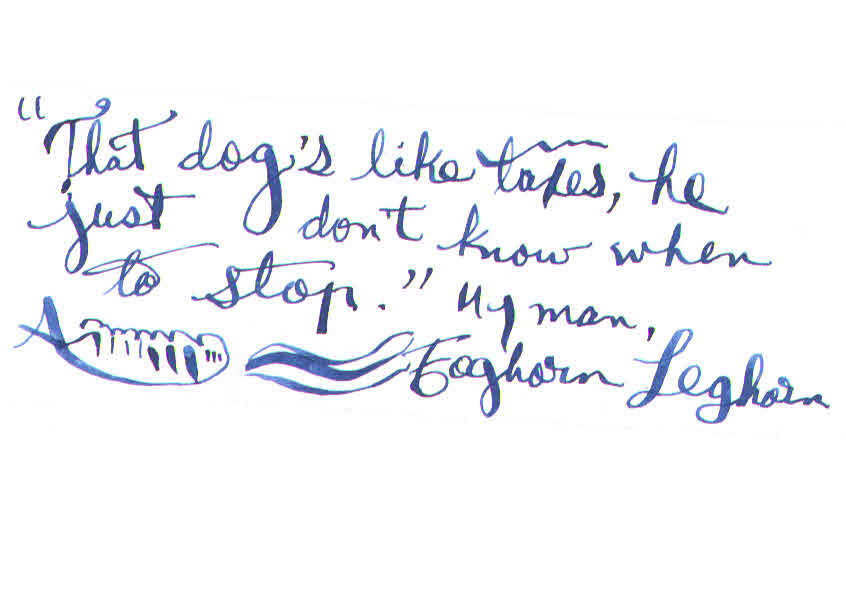 "That dog's like taxes, he
just don't know when
to stop." My man,
Foghorn Leghorn